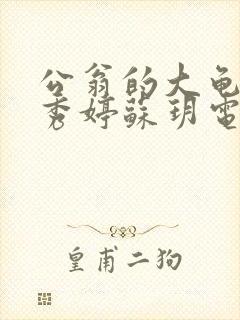 公翁的大龟
秀婷蘇玥電
皇甫二狗